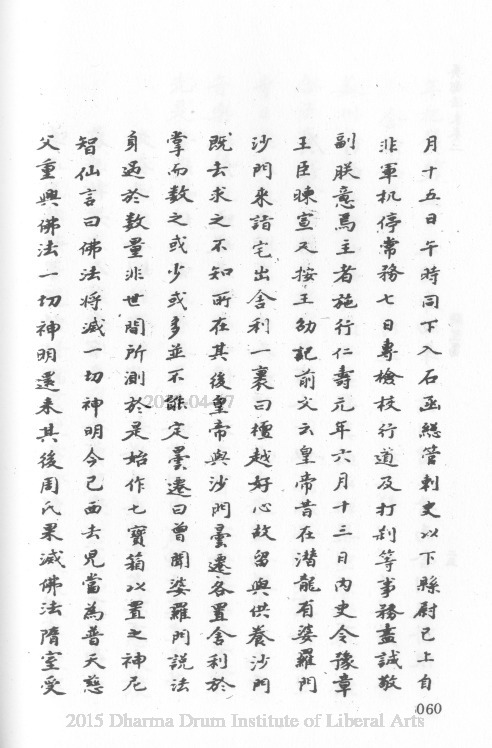 月十五日午時同下入石函緫管刺史以下縣尉已上自
非軍机停常務七日專檢校行道及打刹等事務盡誠敬
副朕意焉主者施行仁壽元年六月十三日內史令豫章
王臣暕宣又按王劭記前文云皇帝昔在潜龍有婆羅門
沙門来詣宅出舍利一裹曰檀越好心故留與供養沙門
既去求之不知所在其後皇帝與沙門曇遷各置舍利於
掌而数之或少或多並不能定曇遷曰曾聞婆羅門説法
身過於数量非世間所測於是始作七寶箱以置之神尼
智仙言曰佛法将滅一切神明今已西去兒當為普天慈
父重興佛法一切神明還来其後周氏果滅佛法隋室受
060
2015 Dharma Drum Institute of Liberal Arts